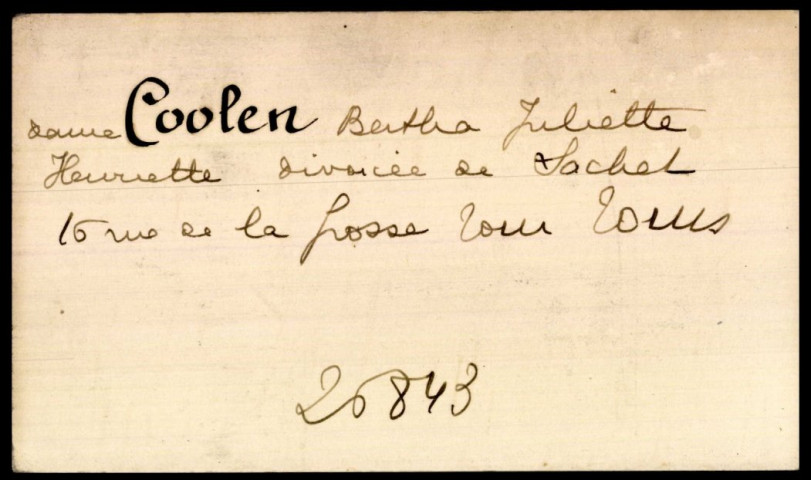 dame Coolen Bertha Juliette
Henriette divorcée de Sachet
16 rue de la Grosse Tour Tours
26843